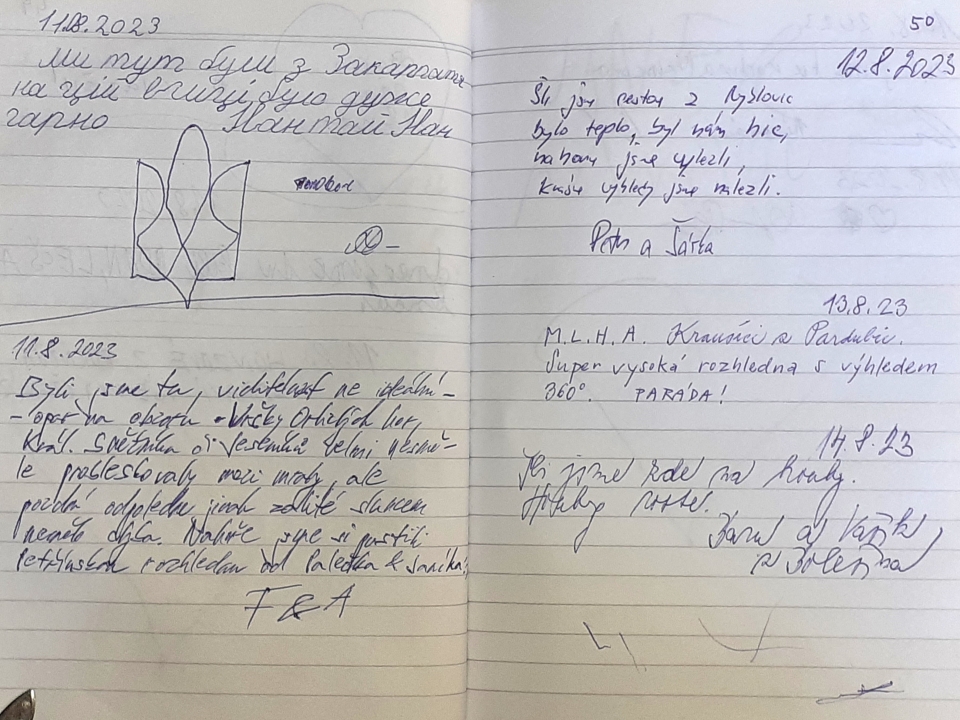 11.8.2023
Ми тут були з Закарпаття
на цій вишці було дуже
гарно
11.8.2023
Byli jsme tu, viditelnost ne ideální -
- opar na obzoru - Vršky Orlických hor,
Král. Sněžníku či Jeseníků velmi nesmě-
le probleskovaly mezi mraky, ale
pozdní odpoledne jinak zalité sluncem
nemělo chybu. Nahoře jsme si pustili
Petřínskou rozhlednu od Palečka & Janíka,
F & A
50
12.8.2023
Šli jsme cestou z
bylo teplo, byl nám hic,
nahoru jsme vylezli,
krásné výhledy jsme nalezli.
Petr a Šárka
13.8.23
M.L.H.A. Krausíci z Pardubic.
Super vysoká rozhledna s výhledem
360°. PARÁDA!
14.8.23
Šli jsme zde na houby.
Houby rostou.